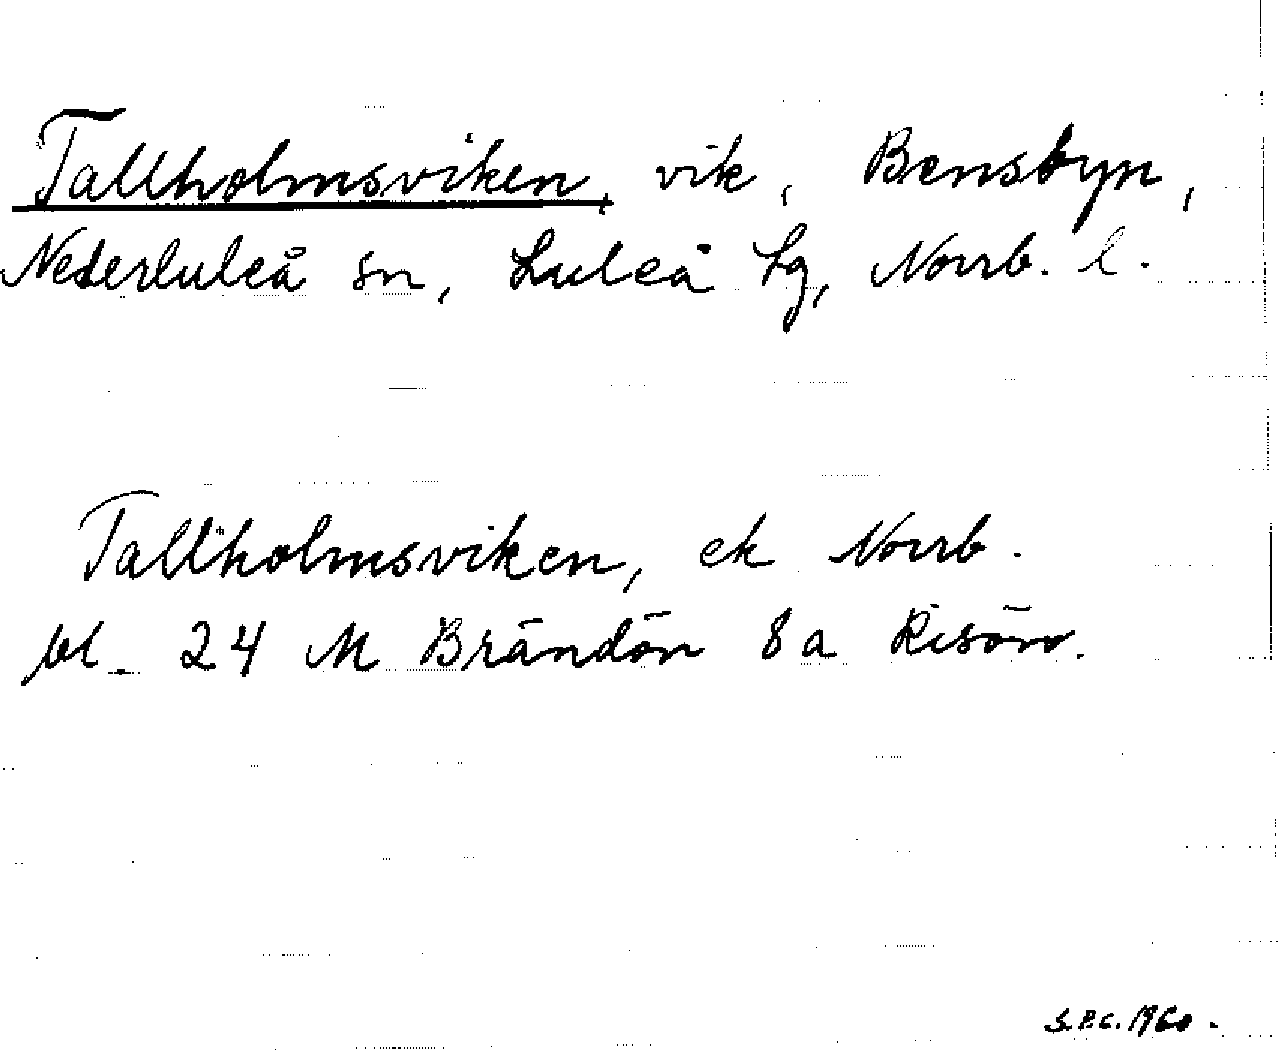 Tallholmsviken, vik, Bensbyn,
Nederluleå sn, Luleå tg, Norrb. l.
Tallholmsviken, ek Norrb.
bl. 24 M Brändön 8a Risön.
S.P.C. 1960.